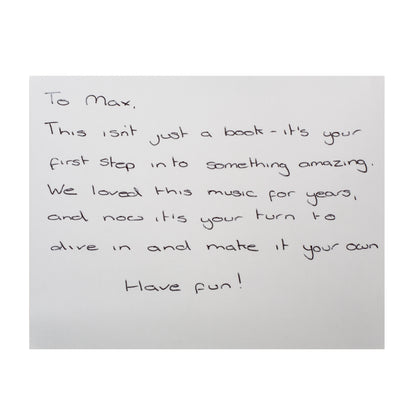 To Max,
This isn't just a book - it's your
first step into something amazing.
We loved this music for years,
and now it's your turn to
dive in and make it your own
Have fun!